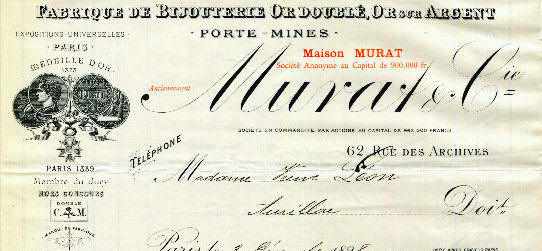 FABRIQUE DE BIJOUTERIE OR DOUBLÉ, OR SUR ARGENT
- PORTE-MINES -
EXPOSITIONS UNIVERSELLES
- PARIS -
MÉDAILLE D'OR
Maison MURAT
Société Anonyme au Capital de 900,000 fr.
Anciennement
Murat & Cie
SOCIÉTÉ EN COMMANDITE PAR ACTIONS AU CAPITAL DE FRANCS
TÉLÉPHONE
62 RUE DES ARCHIVES
PARIS 1889
Membre du Jury
HORS CONCOURS
DOUBLÉ
C. M.
MARQUE DE FABRIQUE
Madame Veuve Léon
Aurillac
Doit
Paris